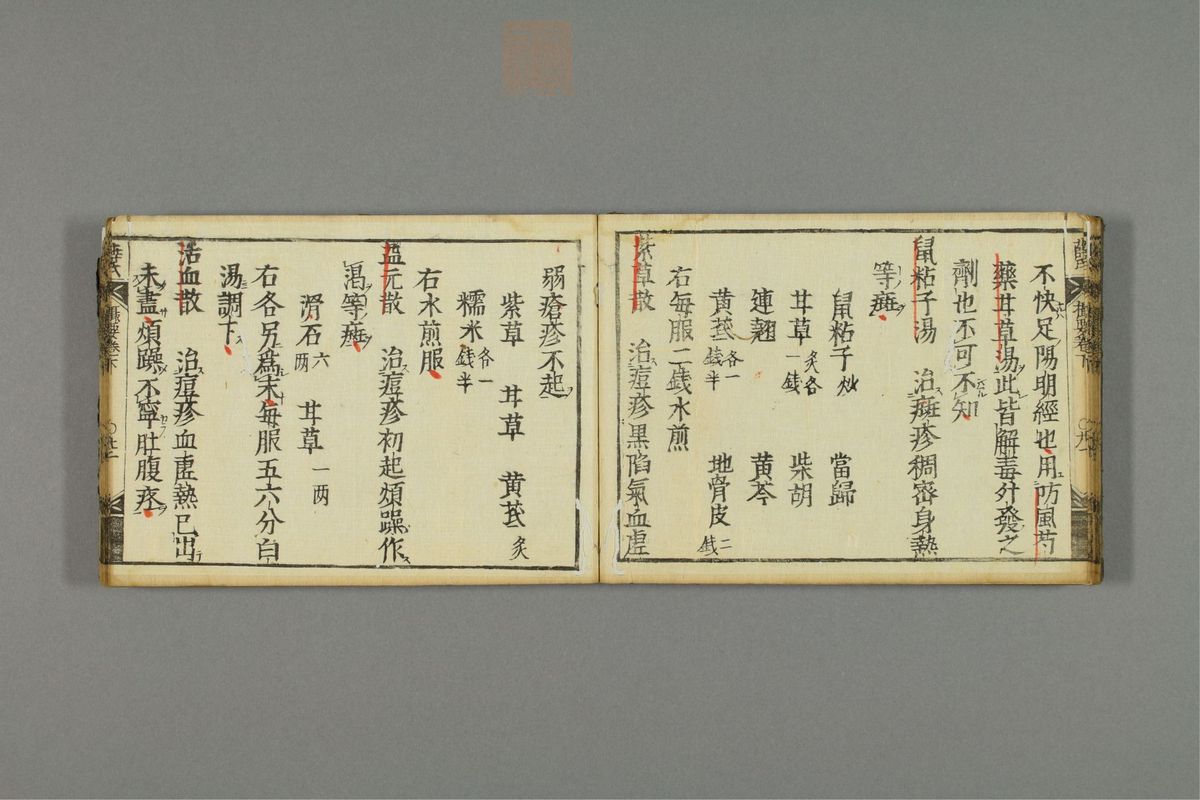 不快足陽明經也用防風芍
藥甘草湯此皆解毒升發之
劑也不可不知
鼠粘子湯 治癍疹稠密身熱
等癍
鼠粘子炒 當歸
甘草炙各一錢 柴胡
連翹 黄芩
黄芪各一錢半 地骨皮二錢
右每服二錢水煎
紫草散 治痘疹黑陷氣血虛
弱瘡疹不起
紫草 甘草 黄芪炙
糯米各一錢半
右水煎服
益元散 治痘疹初起煩躁作
渴等癍
滑石六両 甘草一両
右各另爲末每服五六分白
湯調下
活血散 治痘疹血虛熱已出
未盡煩躁不寧肚腹疼